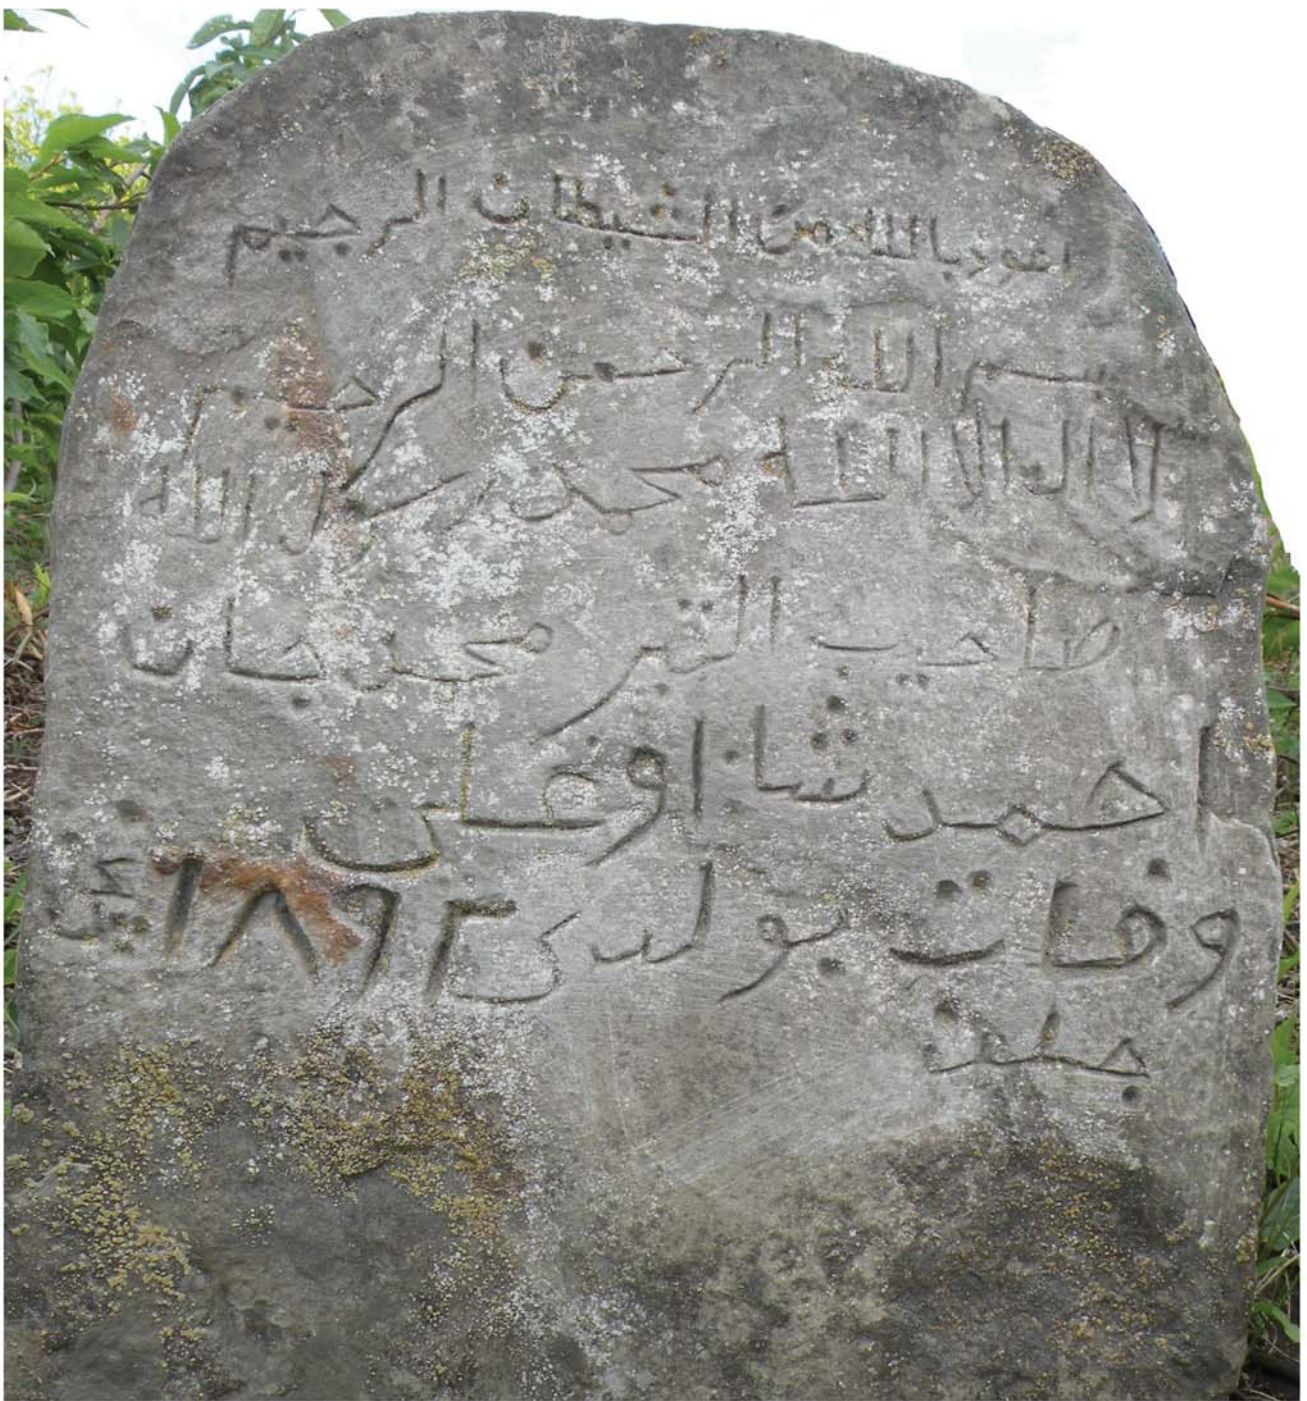 اعوذ بالله من الشيطان الرجيم
بسم الله الرحمن الرحيم
لا اله الا الله محمد رسول الله
صاحب القبر محمد جان
احمد شا اوغلن
وفات بولدى ١٨٩٢